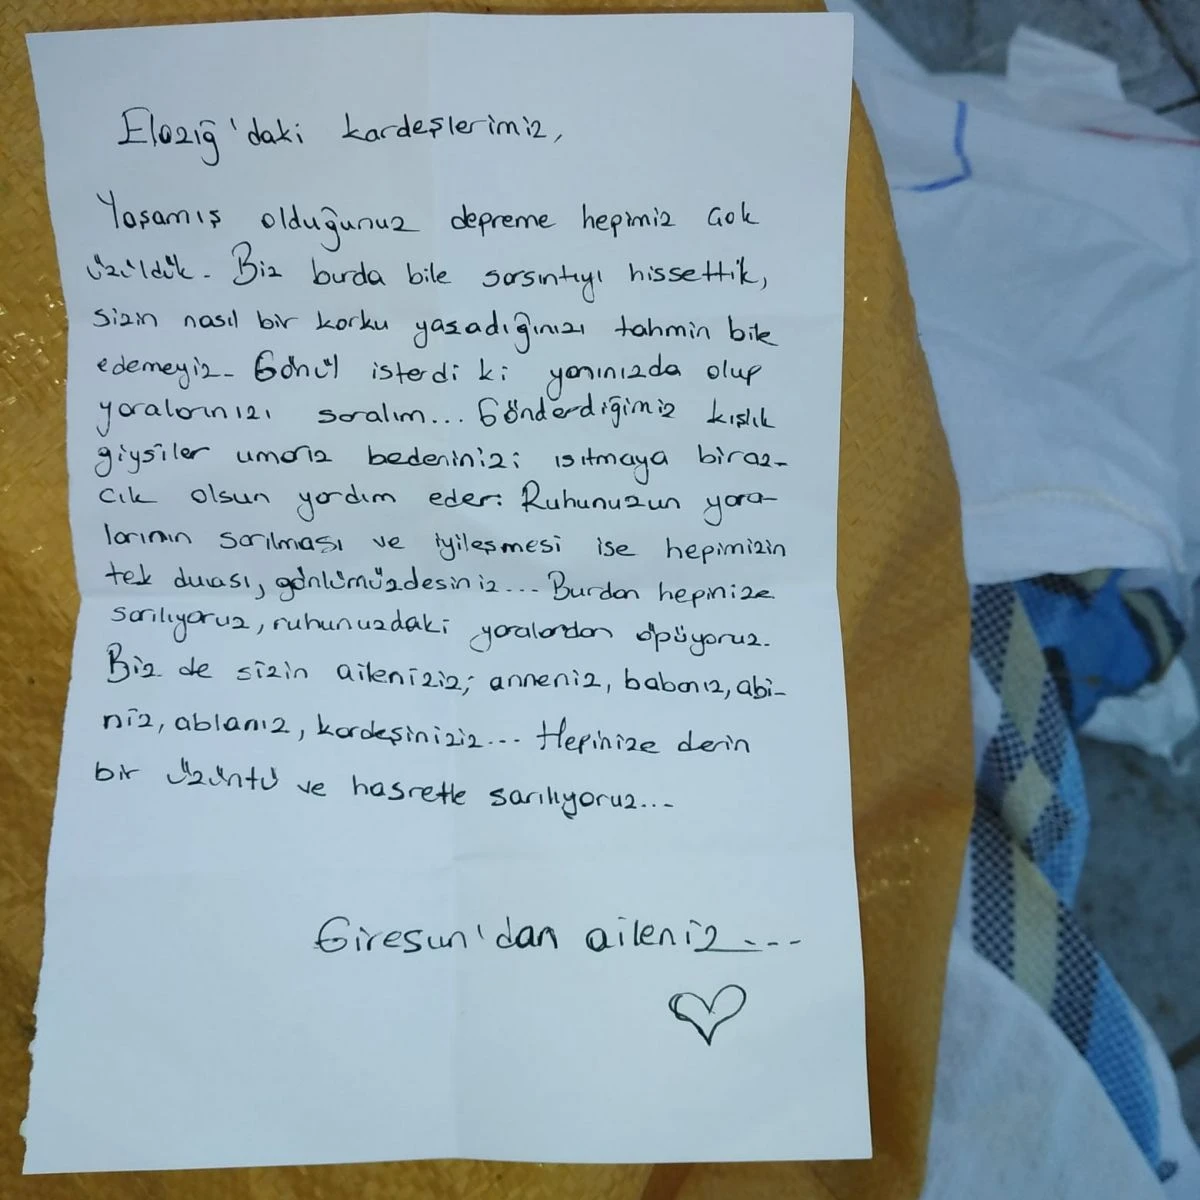 Elazığ'daki kardeşlerimiz,
Yaşamış olduğunuz depreme hepimiz çok
üzüldük. Biz burda bile sarsıntıyı hissettik,
sizin nasıl bir korku yaşadığınızı tahmin bile
edemeyiz. Gönül isterdi ki yanınızda olup
yaralarınızı saralım... Gönderdiğimiz kışlık
giysiler umarız bedeninizi ısıtmaya biraz-
cık olsun yardım eder. Ruhunuzun yara-
larının sarılması ve iyileşmesi ise hepimizin
tek duası, gönlümüzdesiniz... Burdan hepinize
sarılıyoruz, ruhunuzdaki yaralardan öpüyoruz.
Biz de sizin aileniziz; anneniz, babanız, abi-
niz, ablanız, kardeşiniziz... Hepinize derin
bir üzüntü ve hasretle sarılıyoruz...
Giresun'dan aileniz...